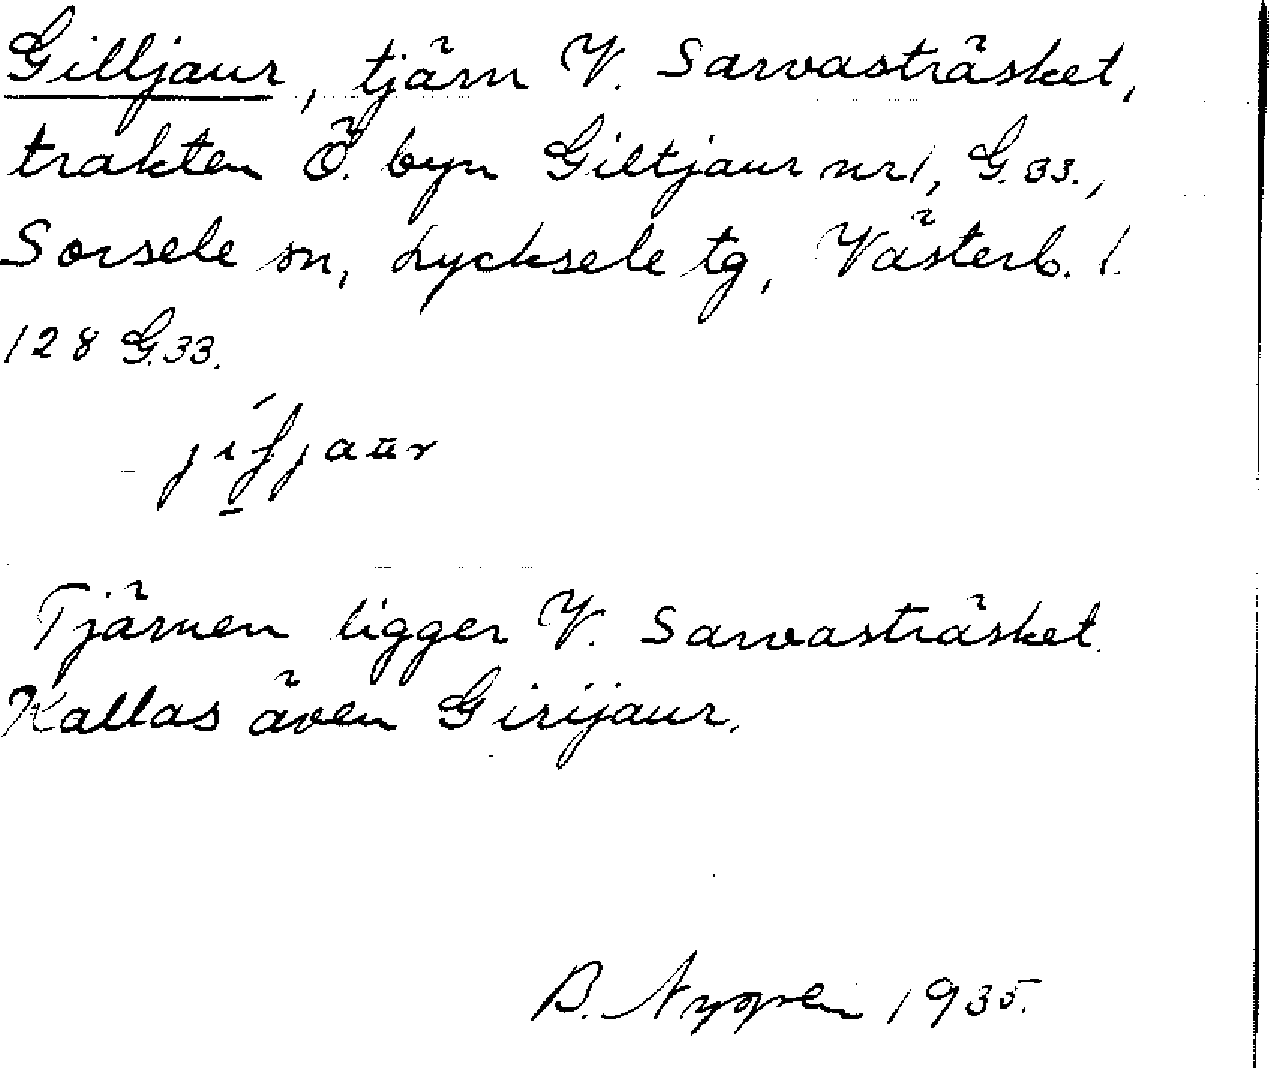 Gilljaur, tjärn V. Sarvasträsket,
trakten Ö. byn Giltjaur nr 1, G.33.,
Sorsele sn, Lycksele tg, Västerb. l.
128 G.33.
Tjärnen ligger V. Sarvasträsket.
Kallas även Girijaur.
B. Nygren 1935.